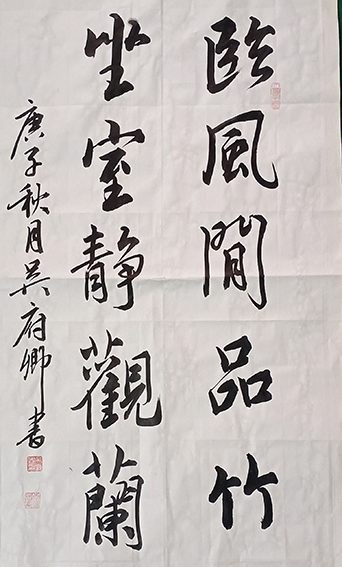 臨風閒品竹
坐室靜觀蘭
庚子秋月吴府卿書